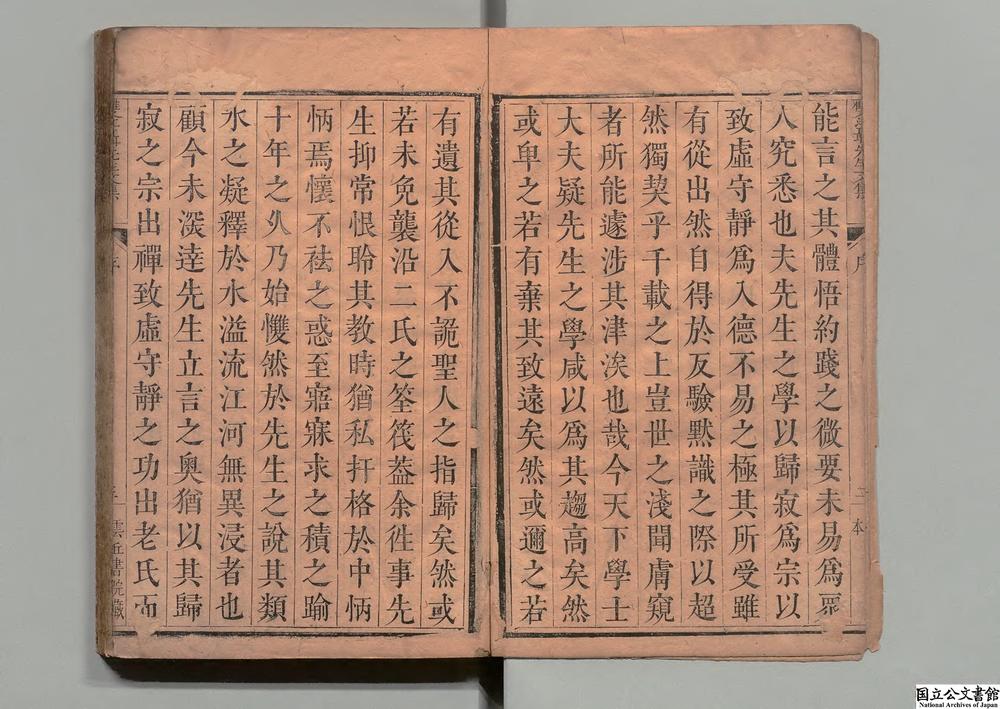 能言之其體悟約踐之微要未易爲眾
人究悉也夫先生之學以歸寂爲宗以
致虛守靜爲入德不易之極其所受雖
有從出然自得於反驗黙識之際以超
然獨契乎千載之上豈世之淺聞膚窺
者所能遽涉其津涘也哉今天下學士
大夫疑先生之學咸以爲其趨高矣然
或卑之若有棄其致遠矣然或邇之若
有遺其從入不詭聖人之指歸矣然或
若未免襲沿二氏之筌筏葢余徃事先
生抑常恨聆其教時猶私扞格於中怲
怲焉懷不袪之惑至寤寐求之積之踰
十年之乆乃始戄然於先生之說其類
水之凝釋於水溢流江河無異浸者也
顧今未深逹先生立言之奧猶以其歸
寂之宗出禪致虛守靜之功出老氏而
序
雲丘書院藏
国立公文書館
National Archives of Japan